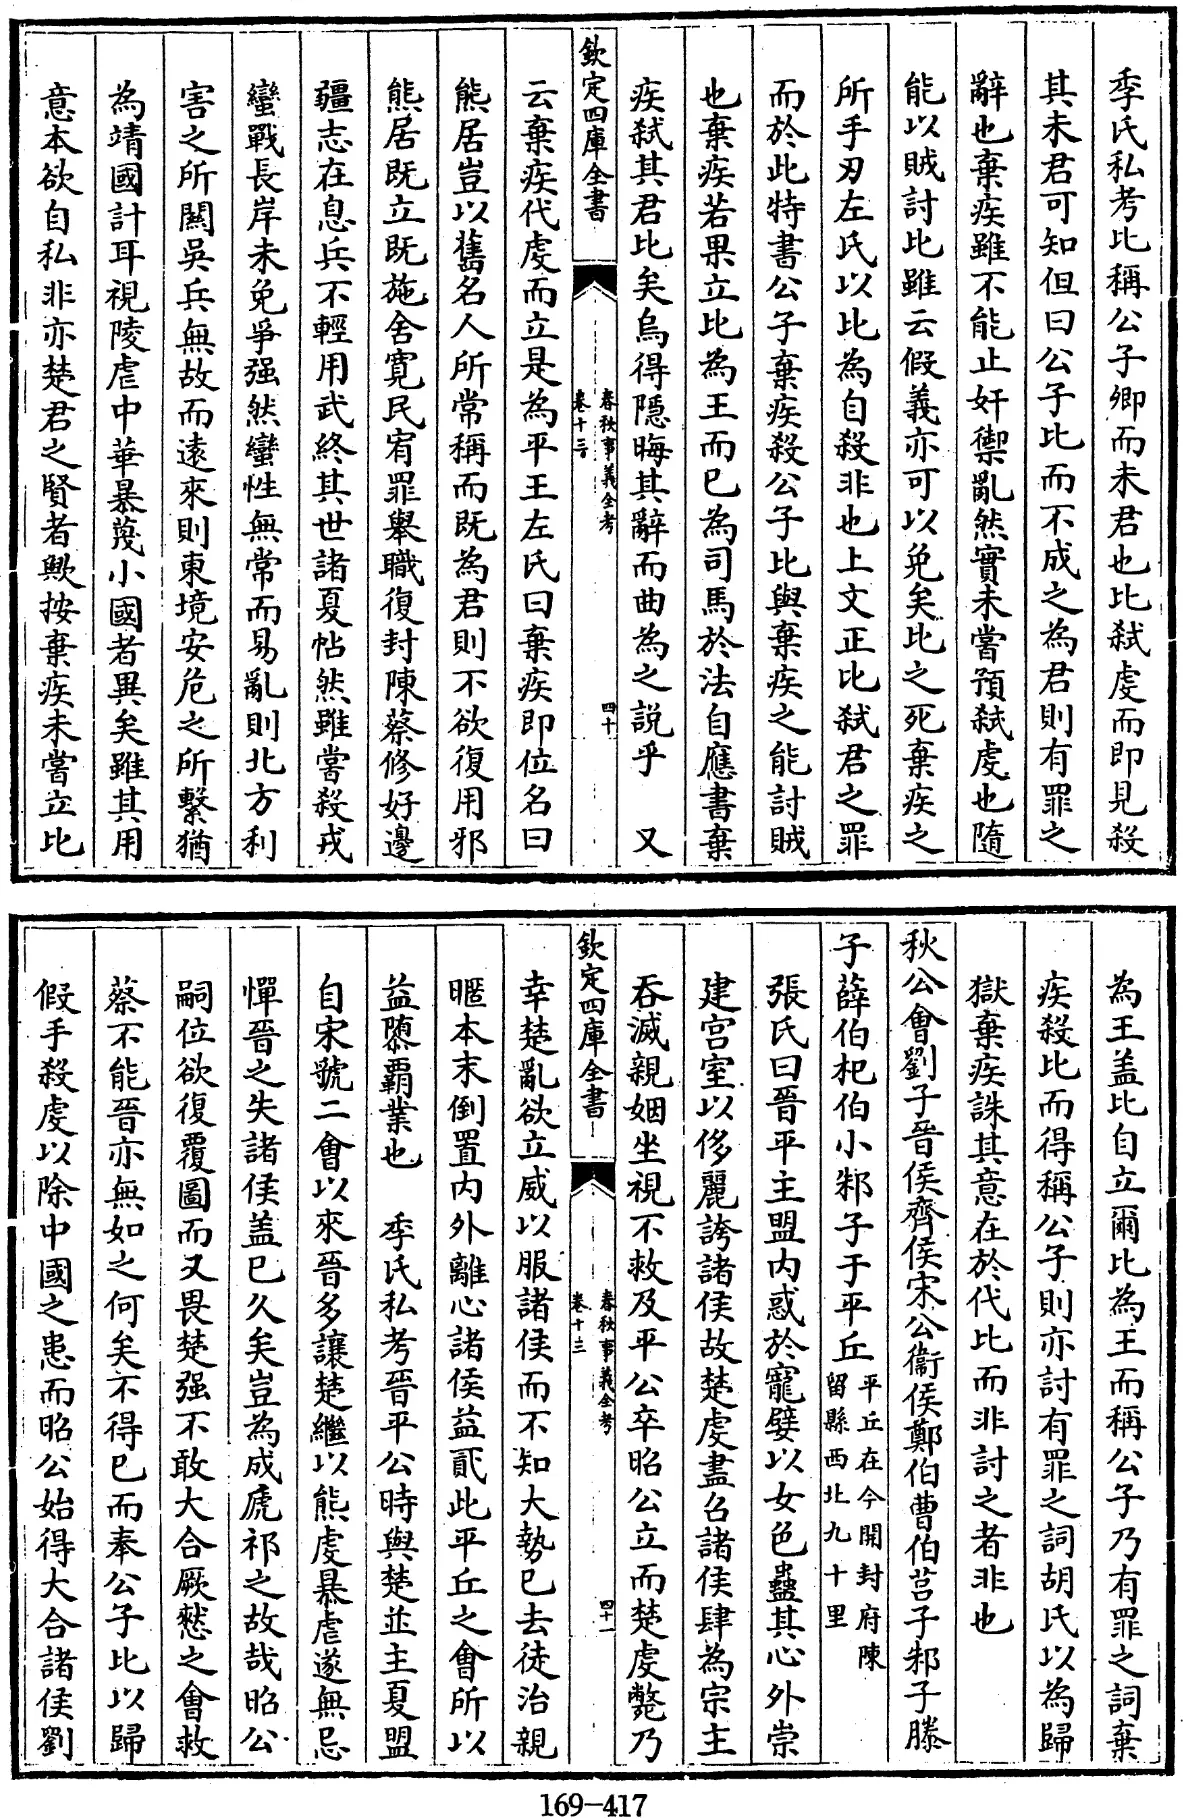 季氏私考比稱公子卿而未君也比弑虔而即見殺
其未君可知但曰公子比而不成之為君則有罪之
辭也棄疾雖不能止奸禦亂然實未嘗預弑虔也隨
能以賊討比雖云假義亦可以免矣比之死棄疾之
所手刃左氏以比為自殺非也上文正比弑君之罪
而於此特書公子棄疾殺公子比與棄疾之能討賊
也棄疾若果立比為王而已為司馬於法自應書棄
疾弑其君比矣烏得隱晦其辭而曲為之説乎　又
欽定四庫全書
春秋事義全考
卷十三
四十
云棄疾代虔而立是為平王左氏曰棄疾即位名曰
熊居豈以舊名人所常稱而既為君則不欲復用邪
熊居既立既施舍寛民宥罪舉職復封陳蔡修好邊
疆志在息兵不輕用武終其世諸夏帖然雖嘗殺戎
蠻戰長岸未免爭强然蠻性無常而易亂則北方利
害之所關吳兵無故而遠來則東境安危之所繫猶
為靖國計耳視陵虐中華暴蔑小國者異矣雖其用
意本欲自私非亦楚君之賢者歟按棄疾未嘗立比
為王盖比自立爾比為王而稱公子乃有罪之詞棄
疾殺比而得稱公子則亦討有罪之詞胡氏以為歸
獄棄疾誅其意在於代比而非討之者非也
秋公會劉子晉侯齊侯宋公衞侯鄭伯曹伯莒子邾子滕
子薛伯杞伯小邾子于平丘平丘在今開封府陳留縣西北九十里
張氏曰晉平主盟内惑於寵嬖以女色蠱其心外崇
建宫室以侈麗誇諸侯故楚虔盡召諸侯肆為宗主
吞滅親姻坐視不救及平公卒昭公立而楚虔斃乃
欽定四庫全書
春秋事義全考
卷十三
四十一
幸楚亂欲立威以服諸侯而不知大勢已去徒治親
暱本末倒置内外離心諸侯益貳此平丘之會所以
益隳覇業也　季氏私考晉平公時與楚並主夏盟
自宋號二會以來晉多讓楚繼以熊虔暴虐遂無忌
憚晉之失諸侯盖已久矣豈為成虒祁之故哉昭公
嗣位欲復覆圖而又畏楚强不敢大合厥憖之會救
蔡不能晉亦無如之何矣不得已而奉公子比以歸
假手殺虔以除中國之患而昭公始得大合諸侯劉
169-417